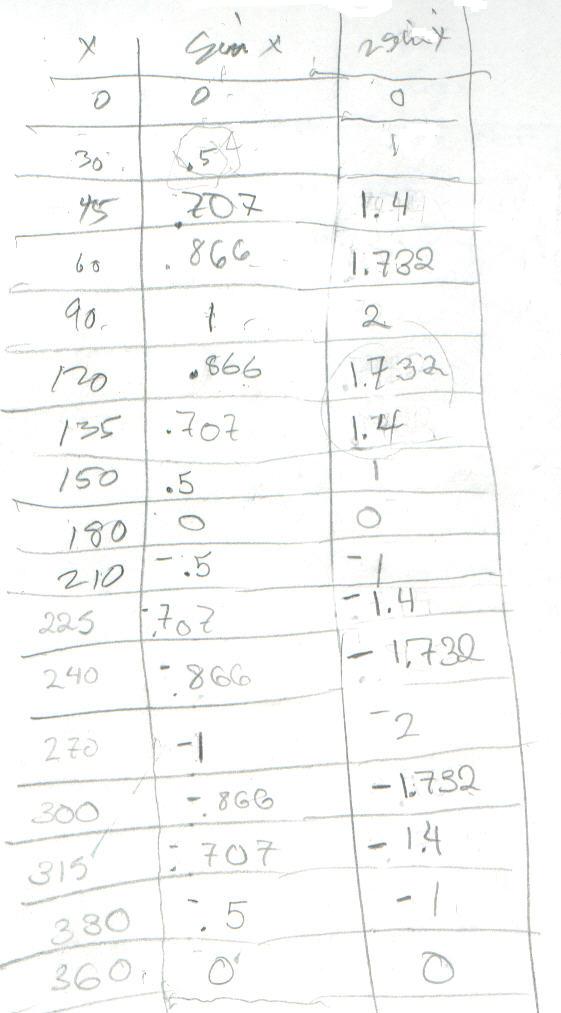 x sin x 2sin x
0 0 0
30 .5 1
45 .707 1.4
60 .866 1.732
90 1 2
120 .866 1.732
135 .707 1.4
150 .5 1
180 0 0
210 -.5 -1
225 -.707 -1.4
240 -.866 -1.732
270 -1 -2
300 -.866 -1.732
315 -.707 -1.4
330 -.5 -1
360 0 0